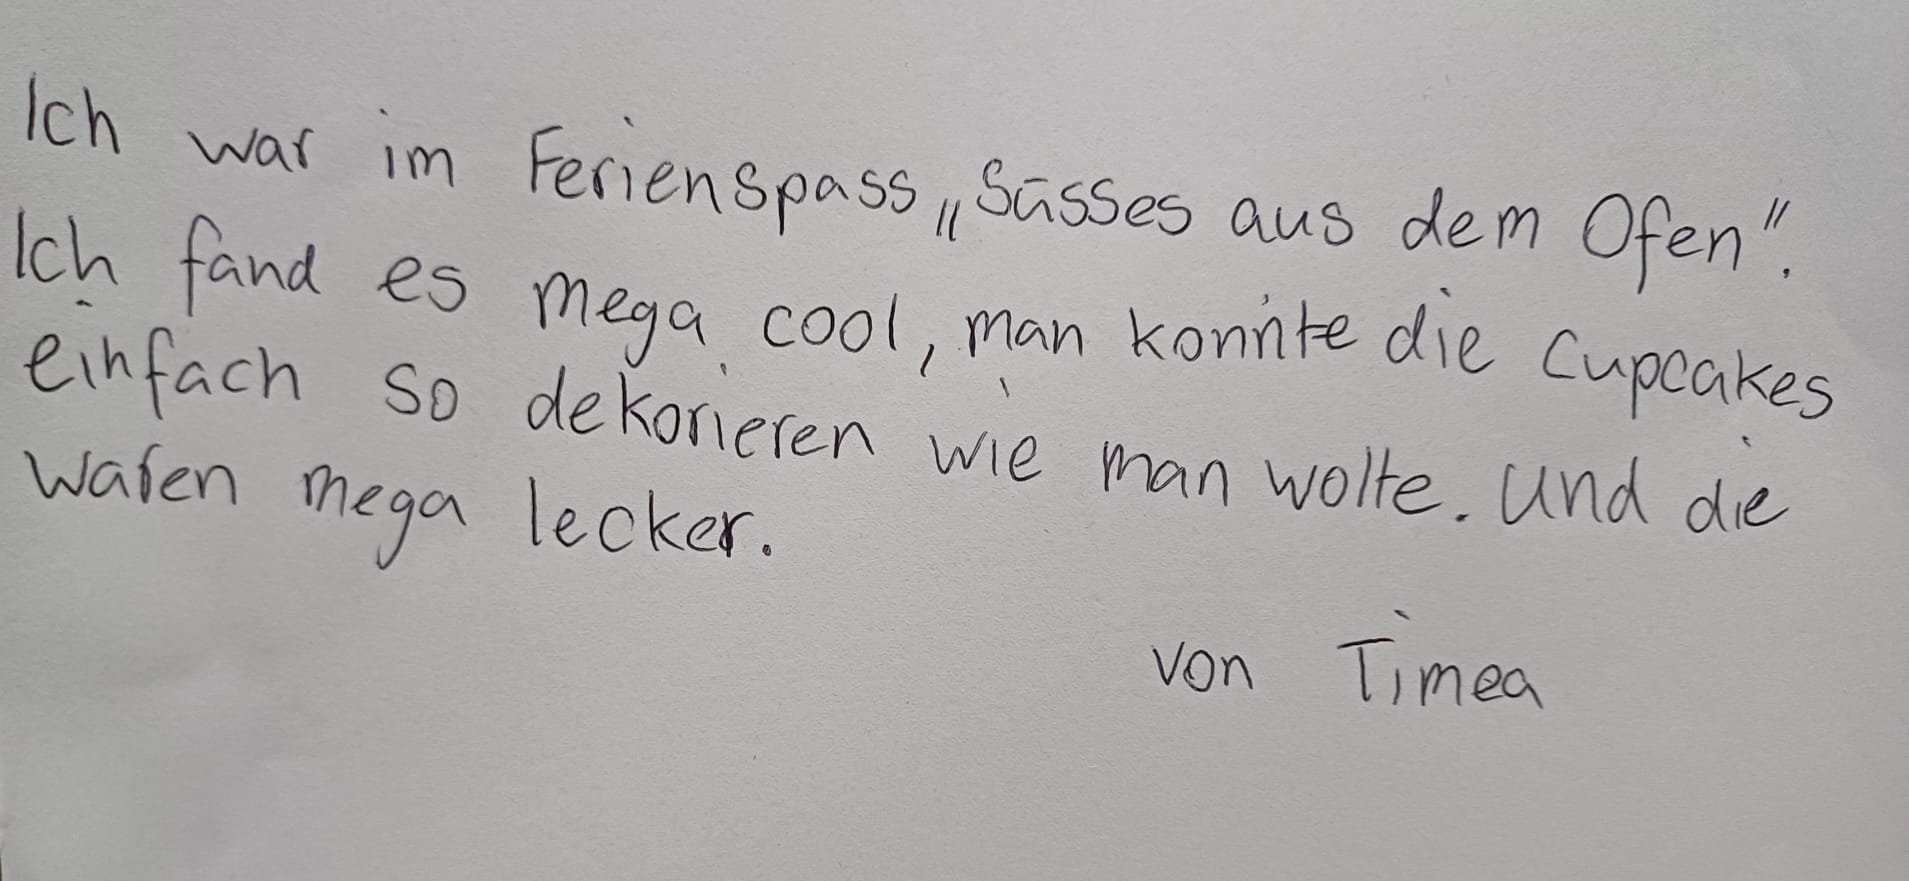 Ich war im Ferienspass „Süsses aus dem Ofen".
Ich fand es mega cool, man konnte die Cupcakes
einfach so dekorieren wie man wolte. Und die
waren mega lecker.
von Timea